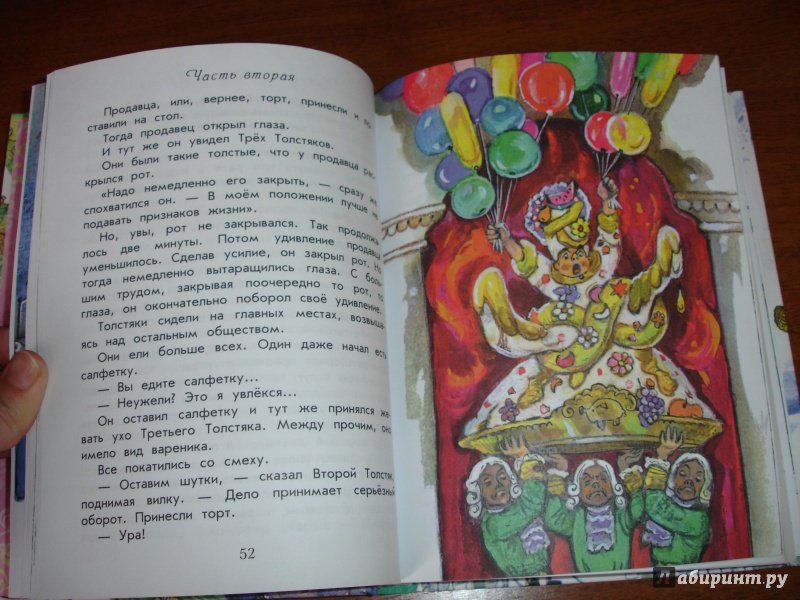 Часть вторая
Продавца, или, вернее, торт, принесли и по
ставили на стол.
Тогда продавец открыл глаза.
И тут же он увидел Трёх Толстяков.
Они были такие толстые, что у продавца рас
крылся рот.
«Надо немедленно его закрыть, — сразу же
спохватился он. — В моём положении лучше не
подавать признаков жизни».
Но, увы, рот не закрывался. Так продолжа
лось две минуты. Потом удивление продавца
уменьшилось. Сделав усилие, он закрыл рот. Но
тогда немедленно вытаращились глаза. С боль
шим трудом, закрывая поочерёдно то рот, то
глаза, он окончательно поборол своё удивление.
Толстяки сидели на главных местах, возвыша
ясь над остальным обществом.
Они ели больше всех. Один даже начал есть
салфетку.
— Вы едите салфетку...
— Неужели? Это я увлёкся...
Он оставил салфетку и тут же принялся же
вать ухо Третьего Толстяка. Между прочим, оно
имело вид вареника.
Все покатились со смеху.
— Оставим шутки, — сказал Второй Толстяк,
поднимая вилку. — Дело принимает серьёзный
оборот. Принесли торт.
— Ура!
52
Лабиринт.ру